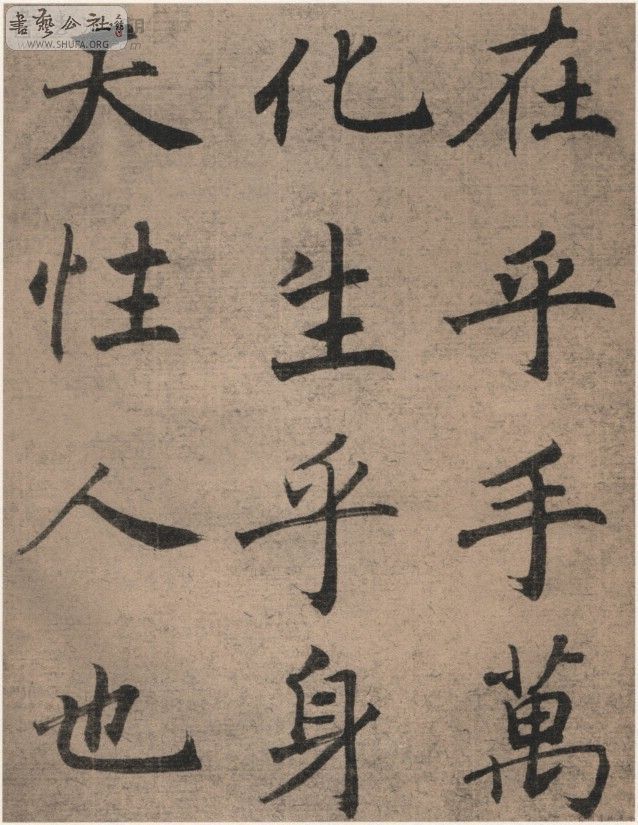 在乎手萬
化生乎身
天性人也
書藝公社
WWW.SHUFA.ORG